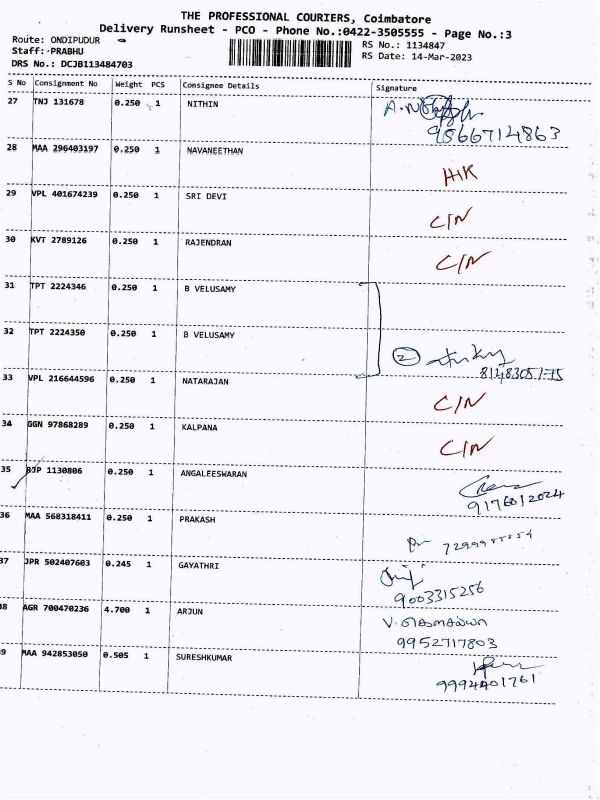 THE PROFESSIONAL COURIERS, Coimbatore
Delivery Runsheet - PCO - Phone No.:0422-3505555 - Page No.:3
Route: ONDIPUDUR
Staff: PRABHU
DRS No.: DCJB113484703
RS No.: 1134847
RS Date: 14-Mar-2023
S No Consignment No Weight PCS Consignee Details Signature
27 TNJ 131678 0.250 1 NITHIN
9566714863
28 MAA 296403197 0.250 1 NAVANEETHAN
H/K
29 VPL 401674239 0.250 1 SRI DEVI C/N
30 KVT 2789126 0.250 1 RAJENDRAN C/N
31 TPT 2224346 0.250 1 B VELUSAMY
32 TPT 2224350 0.250 1 B VELUSAMY
2
33 VPL 216644596 0.250 1 NATARAJAN C/N
34 GGN 97868289 0.250 1 KALPANA C/N
35 BJP 1130806 0.250 1 ANGALEESWARAN
9176012024
36 MAA 568318411 0.250 1 PRAKASH
37 JPR 502407603 0.245 1 GAYATHRI
9003315256
38 AGR 700470236 4.700 1 ARJUN
9952717803
39 MAA 942853050 0.505 1 SURESHKUMAR
9994401761